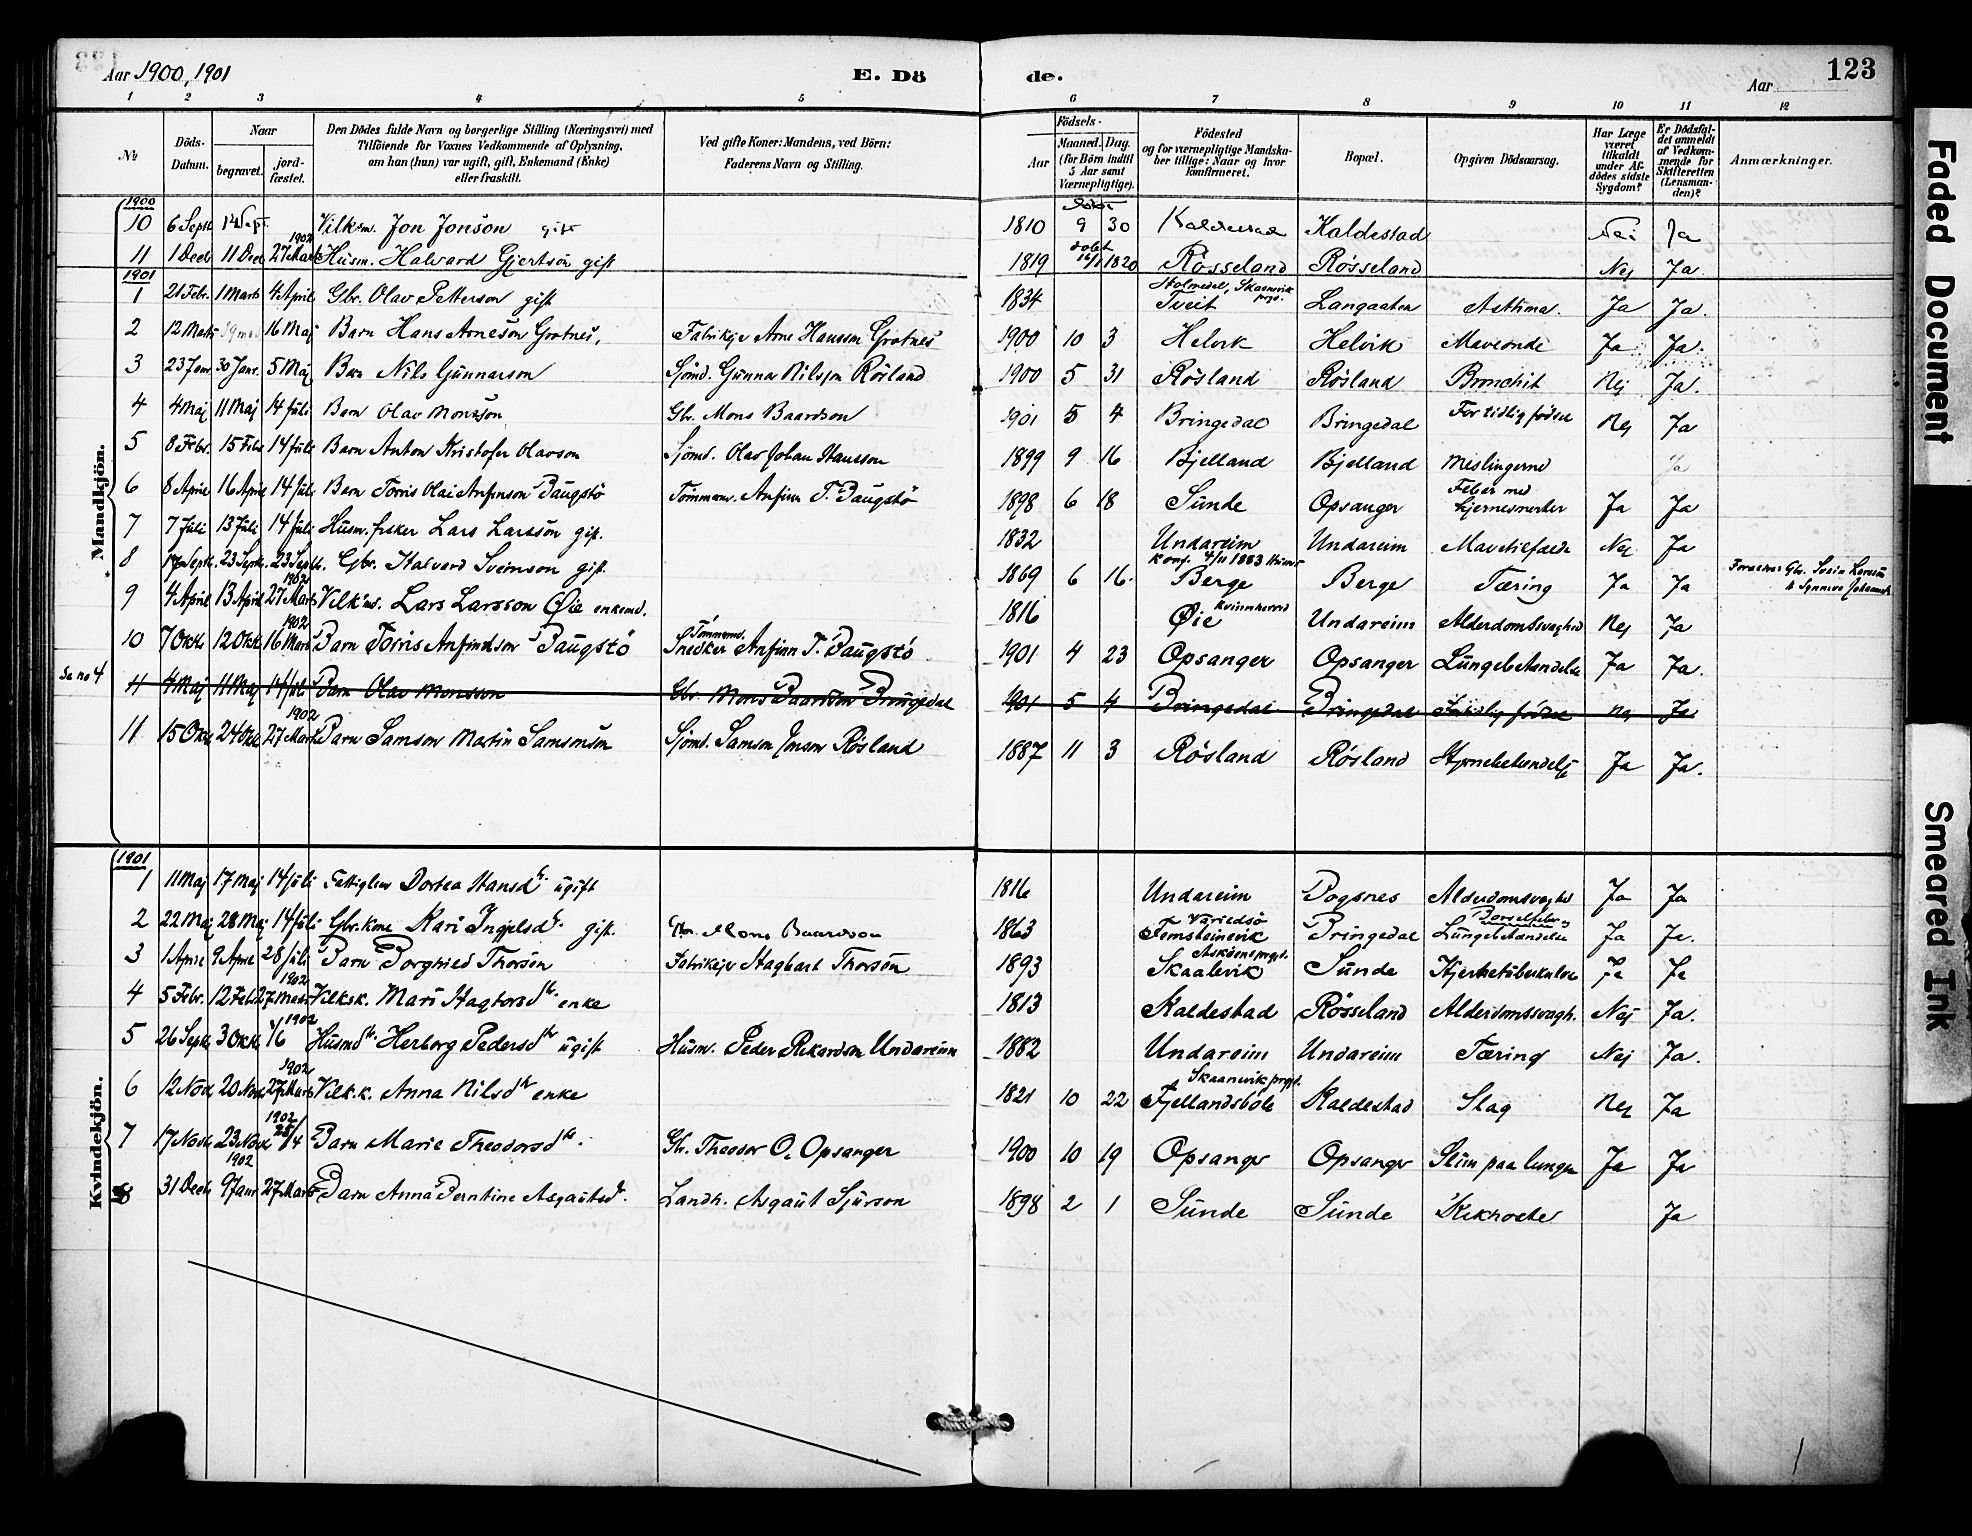 Aar 1900, 1901 E. Dö de. Aar 123
1 2 3 4 5 6 7 8 9 10 11 12
No
Döds-Datum.
Naar begravet. jordfæstet.
Den Dödes fulde Navn og borgerlige Stilling (Næringsvei) med
Tilföiende for Voxnes Vedkommende af Oplysning,
om han (hun) var ugift, gift, Enkemand (Enke)
eller fraskilt.
Ved gifte Koner: Mandens, ved Börn:
Faderens Navn og Stilling.
Födsels-
Aar Maaned. Dag.
(for Börn indtil
5 Aar samt
Værnepligtige).
Födested
og for værnepligtige Mandskaber tillige: Naar og hvor
konfirmeret.
Bopæl.
Opgiven Dödsaarsag.
Har Læge
været
tilkaldt
under Afdödes sidste
Sygdom?
Er Dödsfaldet anmeldt
af Vedkommende for
Skifteretten
(Lensmanden)?
Anmærkninger.
Mandkjön.
1900
10 6 Septb 14 Sept. Vilksm. Jon Jonson gift 1810 9 30 Kaldestad Kaldestad Nei Ja
11 1 Decb 11 Decb 1902 27 Marts Husm. Halvard Gjertson gift 1819 döbt 16/1 1820 Rösseland Rösseland Nej Ja
1901
1 21 Febr. 1 Marts 4 April Gbr. Olav Petterson gift 1834 Holmedal, Skaanevik prgj. Tveit Langaaten Asthma. Ja Ja.
2 12 Marts 16 Maj Barn Hans Arneson Grotnes, Fabrikejer Arne Hansson Grotnes 1900 10 3 Helvik Helvik Maveonde Ja Ja.
3 23 Janr. 30 Janr. 5 Maj Barn Nils Gunnarson Sjömd. Gunnar Nilsson Rösland 1900 5 31 Rösland Rösland Bronchit Nej Ja.
4 4 Maj 11 Maj 14 Juli Barn Olav Monsson Gbr. Mons Baardson 1901 5 4 Bringedal Bringedal For tidlig födsel Nej Ja
5 8 Febr. 15 Febr 14 Juli Barn Anton Kristofer Olavson Sjömd. Olav Johan Hansson 1899 9 16 Bjelland Bjelland Meslingerne Ja
6 8 April 16 April 14 Juli Barn Torris Olai Anfinson Baugstö Tömmerm. Anfinn T. Baugstö 1898 6 18 Sunde Opsanger Feber med hjernesmerter Ja Ja
7 7 Juli 13 Juli 14 Juli Husm. fisker Lars Larsson gift. 1832 Undareim Undareim Mavetilfælde Nej Ja
8 17 Septb. 23 Septb. 23 Septb. Gbr. Halvard Sveinson gift. 1869 6 16. Konf. 4/11 1883 Berge Berge Tæring Ja Ja Forældre Gbr. Svein Larsson & Synneve
9 4 April 13 April 1902 27 Marts Vilksmd. Lars Larsson Øie enkemd. 1816 Øie Kvinnherred Undareim Alderdomssvaghed Nej Ja
10 7 Oktb 12 Oktb 1902 16 Marts Barn Torris Anfindson Baugstö Tömmermd. Snedker Anfinn T. Baugstö 1901 4 23 Opsanger Opsanger Lungebetændelse Ja Ja.
Se no 4 11 4 Maj 11 Maj 14 Juli Barn Olav Monsson Gbr. Mons Baardson Bringedal 1901 5 4 Bringedal Bringedal For tidlig födsel Nej Ja
11 15 Oktb 24 Oktb 1902 27 Marts Barn Samson Martin Samsonson Sjömd. Samson Jonson Rösland 1887 11 3 Rösland Rösland Hjernebetændelse Ja Ja.
Kvindekjön.
1901
1 11 Maj 17 Maj 14 Juli Fattiglem Dortea Hansdtr. ugift 1816 Undareim Bogsnes Alderdomssvaghed Ja Ja
2 22 Maj 28 Maj 14 Juli Gbr.kone Kari Ingjelsdtr. gift. Gbr. Mons Baardson 1863 Varaldsö Femsteinevik Bringedal Barselfeber og Lungebetændelse Ja Ja.
3 1 April 9 April 28 Juli Barn Borghild Thorson Fabrikejer Hagbart Thorson 1893 Asköens prgj. Skaalevik Sunde Hjertetuberkulose Ja Ja
4 5 Febr. 12 Febr 1902 27 Marts Vilksk. Mari Hagtorsdtr. enke 1813 Kaldestad Rösseland Alderdomssvagh. Nej Ja.
5 26 Septb 3 Oktb 1/6 1902 Husmdtr. Herborg Pedersdtr ugift Husm. Peder Rikardson Undareim 1882 Undareim Undareim Tæring Nej Ja.
6 12 Novb 20 Novb 1902 27 Marts Vilk.k. Anna Nilsdtr enke 1821 10 22 Skaanevik prgj. Fjellandsböle Kaldestad Slag Nej Ja
7 17 Novb 23 Novb 1902 25/4 Barn Marie Theodorsdtr. Gbr. Theodor O. Opsanger 1900 10 19 Opsanger Opsanger Slim paa lungen Ja Ja
8 31 Decb 1902 9 Janr 27 Marts Barn Anna Berntine Asgautsdtr. Landh. Asgaut Sjurson 1898 2 1 Sunde Sunde Kikhoste Ja
Faded Document
Smeared Ink